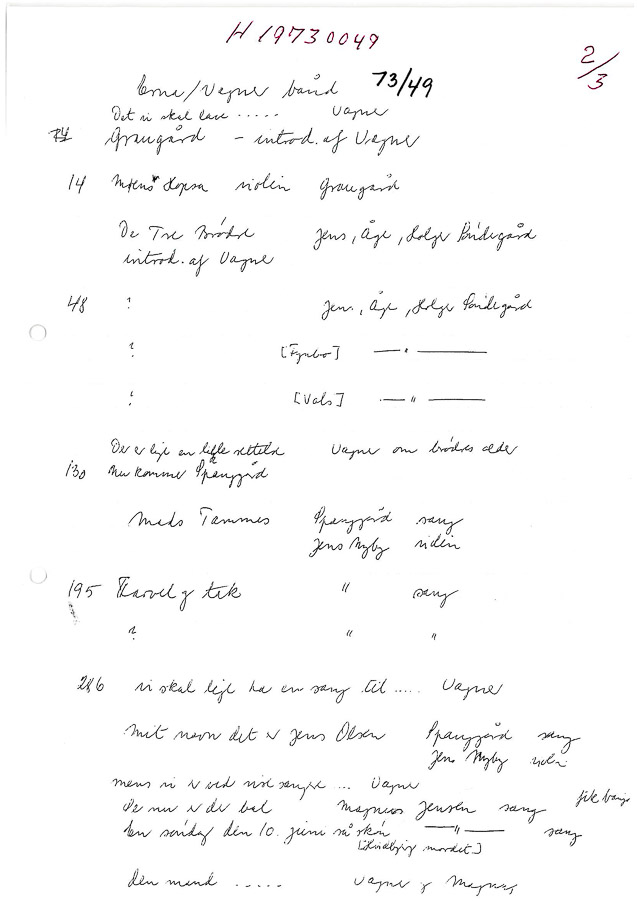 H 19730049
2/3
Erne/Vagner bånd 73/49
Det vi skal lave ..... Vagner
74 Graugård - introd. af Vagner
14 Hopsa violin Graugård
De Tre Brødre Jens, Åge, Holger Søndergård
introd. af Vagner
48 ? Jens, Åge, Holger Søndergård
? [Fynbo] — " —
? [Vals] — " —
De er lige en lille Vagner om brødres alder
130 Nu kommer Spanggård
Mads Tammes Spanggård sang
Jens Nyby violin
195 Farvel og tak " sang
? " "
286 vi skal lige ha en sang til ..... Vagner
Mit navn det er Jens Olsen Spanggård sang
Jens Nyby violin
mens vi er ved ... Vagner
De nu er de bal Magnus Jensen sang
En søndag den 10. juni så skøn — " — sang
mordet]
den mand ..... Vagner og Magnus